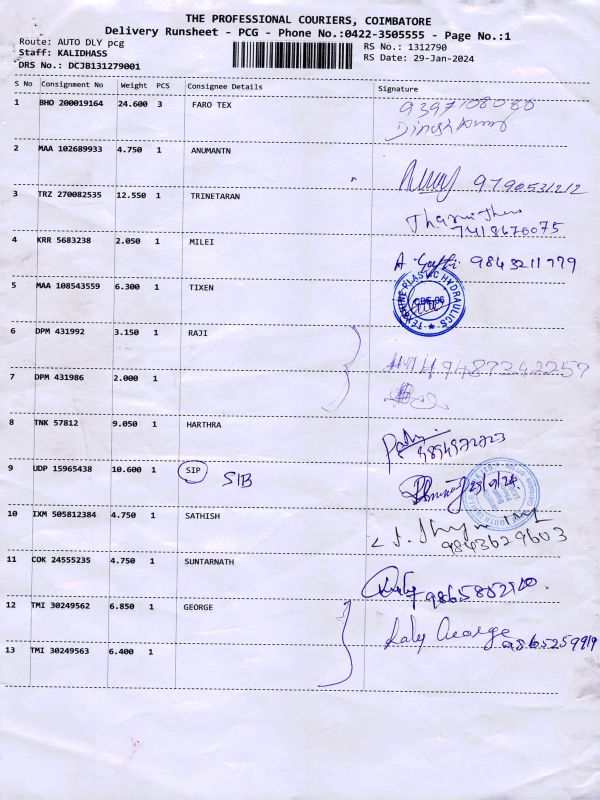 THE PROFESSIONAL COURIERS, COIMBATORE
Delivery Runsheet - PCG - Phone No.:0422-3505555 - Page No.:1
Route: AUTO DLY pcg
Staff: KALIDHASS
DRS No.: DCJB131279001
RS No.: 1312790
RS Date: 29-Jan-2024
S No Consignment No Weight PCS Consignee Details Signature
1 BHO 200019164 24.600 3 FARO TEX
2 MAA 102689933 4.750 1 ANUMANTN
9790531212
3 TRZ 270082535 12.550 1 TRINETARAN
7418670075
4 KRR 5683238 2.050 1 MILEI
9843211779
5 MAA 108543559 6.300 1 TIXEN
PLASTIC HYDRAULICS
6 DPM 431992 3.150 1 RAJI
9487342259
7 DPM 431986 2.000 1
8 TNK 57812 9.050 1 HARTHRA
9894972723
9 UDP 15965438 10.600 1 SIP SIB
10 IXM 505812384 4.750 1 SATHISH
9843629603
11 COK 24555235 4.750 1 SUNTARNATH
12 TMI 30249562 6.850 1 GEORGE
George
9865259919
13 TMI 30249563 6.400 1